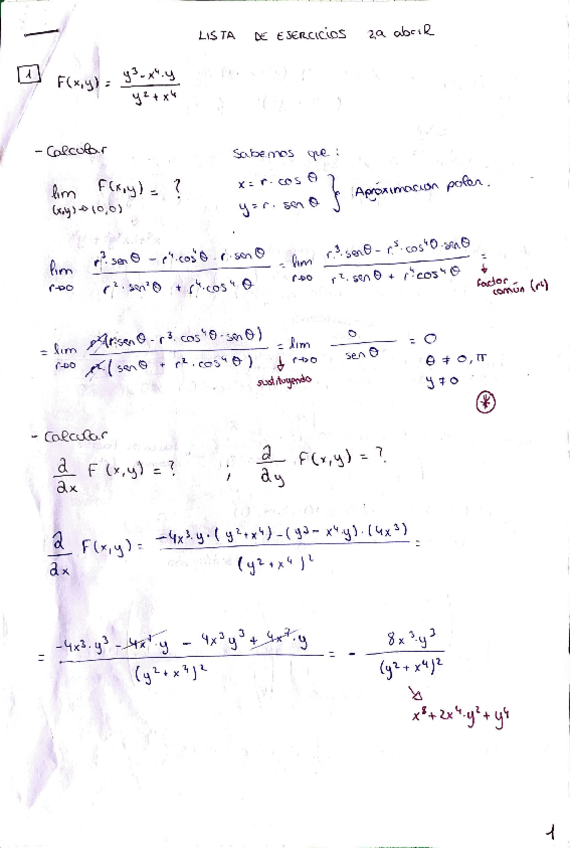 LISTA DE EJERCICIOS 2a abril
1 F(x,y) = (y³ - x⁴·y) / (y² + x⁴)
- Calcular
Sabemos que:
lim F(x,y) = ?
(x,y)→(0,0)
x = r · cos θ
y = r · sen θ
} Aproximacion polar.
lim r→0 (r³·sen θ - r⁴·cos⁴θ · r · sen θ) / (r²·sen²θ + r⁴·cos⁴θ) = lim r→0 (r³·sen θ - r⁵·cos⁴θ·sen θ) / (r²·sen θ + r⁴cos⁴θ) =
factor común (r²)
= lim r→0 r²(r·sen θ - r³·cos⁴θ·sen θ) / r²(sen θ + r²·cos⁴θ) = lim r→0 0 / sen θ = 0
sustituyendo
θ ≠ 0, π
y ≠ 0
*
- Calcular
∂/∂x F(x,y) = ? ; ∂/∂y F(x,y) = ?
∂/∂x F(x,y) = (-4x³·y·(y²+x⁴) - (y³ - x⁴·y)·(4x³)) / (y²+x⁴)² =
= (-4x³·y³ - 4x⁷·y - 4x³y³ + 4x⁷·y) / (y²+x⁴)² = - 8x³·y³ / (y²+x⁴)²
x⁸ + 2x⁴·y² + y⁴
1